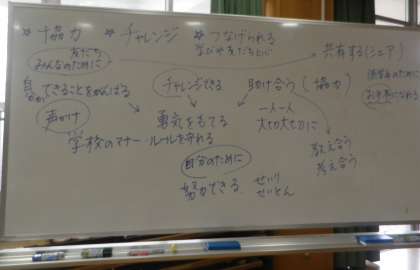 ☆協力 ☆チャレンジ ☆つなげられる
友だち
みんなのために
共有する(シェア)
自分ができることをがんばる
チャレンジできる
助け合う(協力)
お手本になれる
声かけ
勇気をもてる
一人一人
大切に
学校のマナー・ルールを守れる
教え合う
考え合う
自分のために
努力できる
せいり
せいとん